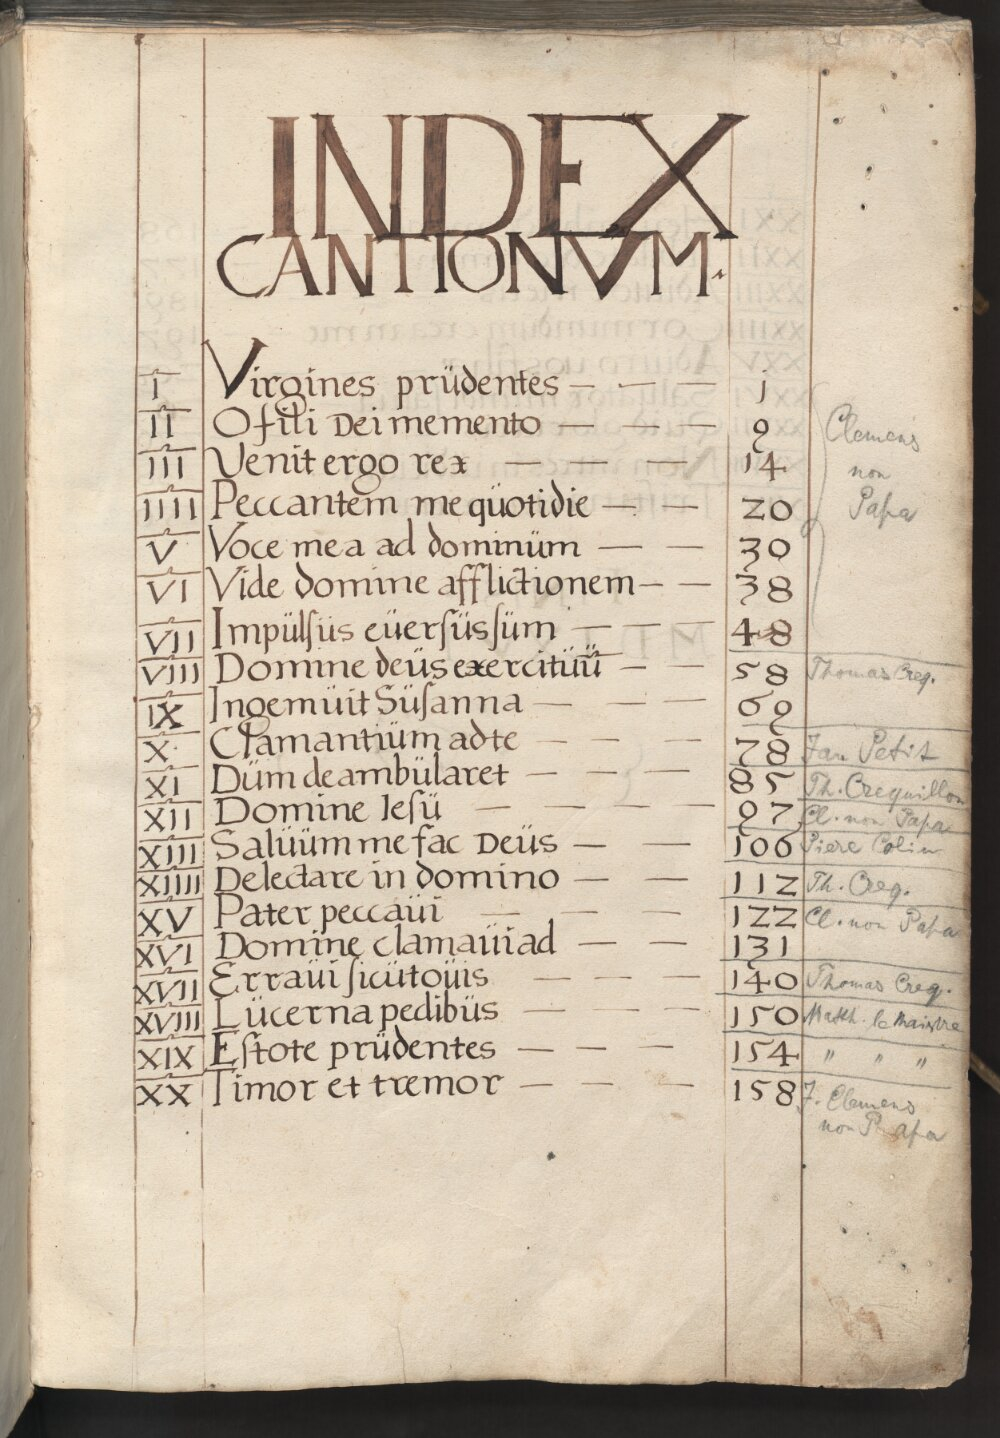 INDEX
CANTIONVM.
I Virgines prüdentes — — — 1
II O fili Dei memento — — — 9
III Venit ergo rex — — — 14
IIII Peccantem me qüotidie — — 20
V Voce mea ad dominüm — — 30
VI Vide domine afflictionem — — 38
VII Impülſüs eüerſüs ſüm — — — 48
VIII Domine deüs exercitüü — — 58
IX Ingemüit Süſanna — — — 69
X Clamantiüm ad te — — — 78
XI Düm deambülaret — — — 85
XII Domine Ieſü — — — — 97
XIII Salüüm me fac Deüs — — 106
XIIII Delectare in domino — — 112
XV Pater peccaüi — — — 122
XVI Domine clamaüi ad — — 131
XVII Erraüi ſicüt oüis — — — 140
XVIII Lücerna pedibüs — — — 150
XIX Eſtote prüdentes — — — 154
XX Timor et tremor — — — 158
Clemens
non
Papa
Thomas Creq.
Jan Petit
Th. Crequillon
Cl. non Papa
Piere Colin
Th. Creq.
Cl. non Papa
Thomas Creq.
Matth. le Maistre
" " "
J. Clemens
non Papa